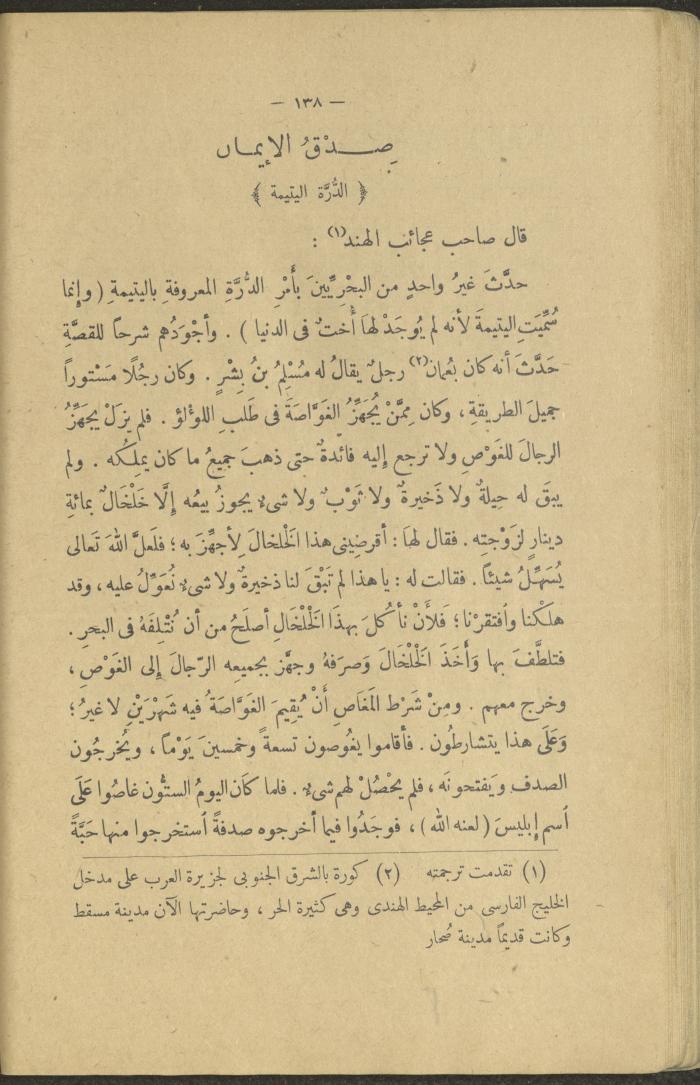 — ١٣٨ —
صِدْقُ الإيمان
﴿ الدُّرَّة اليتيمة ﴾
قال صاحب عجائب الهند(١) :
حدَّثَ غيرُ واحدٍ من البحْرِيِّينَ بأَمْرِ الدُّرَّةِ المعروفةِ باليتيمةِ ( وإنما
سُمِّيَتِ اليتيمةَ لأنه لم يُوجَدْ لهَا أُختٌ فى الدنيا ) . وأجْوَدُهم شرحاً للقصَّةِ
حَدَّثَ أنه كان بعُمان(٢) رجلٌ يقالُ له مُسْلِمُ بنُ بِشْرٍ . وكان رجُلًا مَسْتوراً
جميلَ الطريقةِ ، وكان مِمَّنْ يُجَهِّزُ الغَوَّاصَةَ فى طَلَبِ اللؤلؤ . فلم يزَلْ يجهِّزُ
الرجالَ للغَوْصِ ولا ترجع إليه فائدةٌ حتى ذهبَ جميعُ ما كان يملِكُه . ولم
يبقَ له حِيلةٌ ولا ذَخيرةٌ ولا ثَوْبٌ ولا شىءٌ يجوزُ بيعُه إِلَّا خَلْخَالٌ بمائةِ
دينارٍ لزَوْجتِه . فقال لهَا : أقرضِينى هذا الخَلخالَ لِأجهِّزَ به ؛ فلَعلَّ اللهَ تَعالى
يُسَهِّلُ شيئاً . فقالت له : يا هذا لم تَبْقَ لنا ذخيرةٌ ولا شىءٌ نُعَوِّلُ عليه ، وقد
هلَكنا وافتقرْنا ؛ فَلأَنْ نأكُلَ بهذَا الخَلْخَالِ أصلَحُ من أن نُتْلِفَهُ فى البحرِ .
فتلطَّفَ بها وَأَخَذَ الخَلْخَالَ وَصرَفهُ وجهَّز بجميعِه الرّجالَ إلى الغَوْصِ ،
وخرج معهم . ومِنْ شَرْط المَغَاصِ أَنْ يُقِيمَ الغَوَّاصَةُ فيه شَهْرَيْنِ لا غيرُ ؛
وَعَلَى هذا يتشارطُون . فأقاموا يغُوصون تسعةً وخمسينَ يَوْماً ، ويُخرجُون
الصدف ويَفتحونَه ، فلم يحْصُلْ لهم شىءٌ . فلما كَان اليومُ الستُّون غاصُوا عَلَى
أسم إبليسَ ( لعنه الله ) ، فوجَدُوا فيما أخرجوه صدفةً أستخرجوا منها حَبَّةً
(١) تقدمت ترجمته (٢) كورة بالشرق الجنوبى لجزيرة العرب على مدخل
الخليج الفارسى من المحيط الهندى وهى كثيرة الحر ، وحاضرتها الآن مدينة مسقط
وكانت قديماً مدينة صُحار